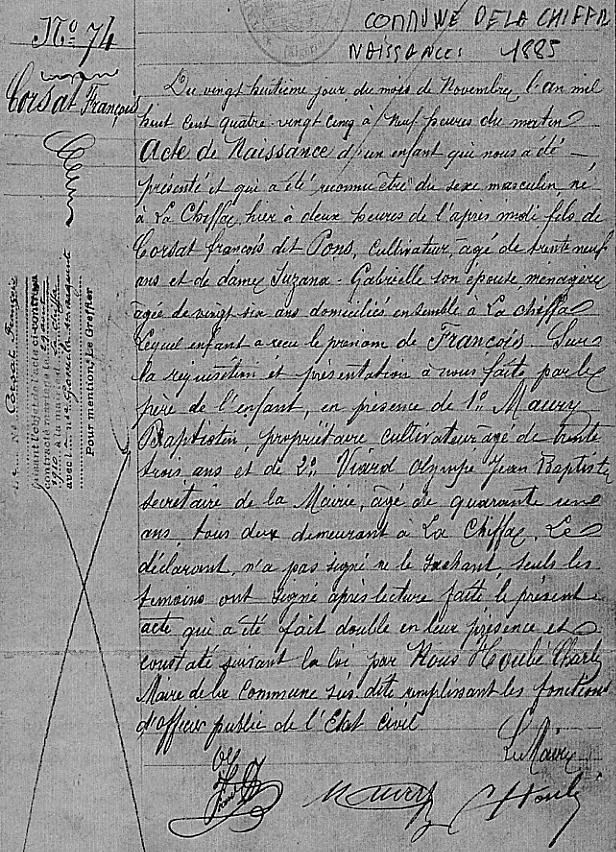 COMMUNE DE LA CHIFFA
NAISSANCES 1885
No 74
Corsat François
Du vingt huitième jour du mois de Novembre l'an mil
huit cent quatre-vingt cinq à neuf heures du matin
Acte de Naissance d'un enfant qui nous a été
présenté et qui a été reconnu être du sexe masculin né
à La Chiffa, hier à deux heures de l'après midi fils de
Corsat françois dit Pons, cultivateur, agé de trente neuf
ans et de dame Suzana - Gabrielle son epouse menagère
agée de vingt six ans domiciliés ensemble à La chiffa
Lequel enfant a reçu le prénom de François. Sur
la requisition et présentation à nous faite par le
père de l'enfant, en présence de 1o Maury
Baptistin, propriétaire cultivateur agé de trente
trois ans et de 2o Viard Olympe Jean Baptiste
secrétaire de la Mairie, agé de quarante un
ans, tous deux demeurant à La Chiffa. Le
déclarant n'a pas signé ne le sachant, seuls les
temoins ont signé après lecture faite le présent
acte qui a été fait double en leur présence et
constaté suivant la loi par Nous Houbé Charles
Maire de la Commune sus-dite remplissant les fonctions
d'officier public de l'Etat Civil
Le Maire
Maury
Corsat François
faisant l'objet de l'acte ci-contre
contracté mariage
avec la
Pour mention, Le Greffier